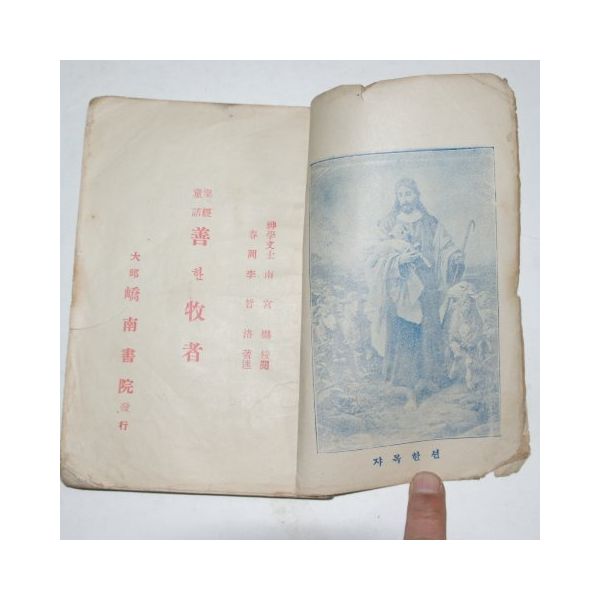 神學文士 南宮爀 校閱
春澗 李晳洛 著述
聖經
童話
善한牧者
大邱 嶠南書院 發行
션한목쟈